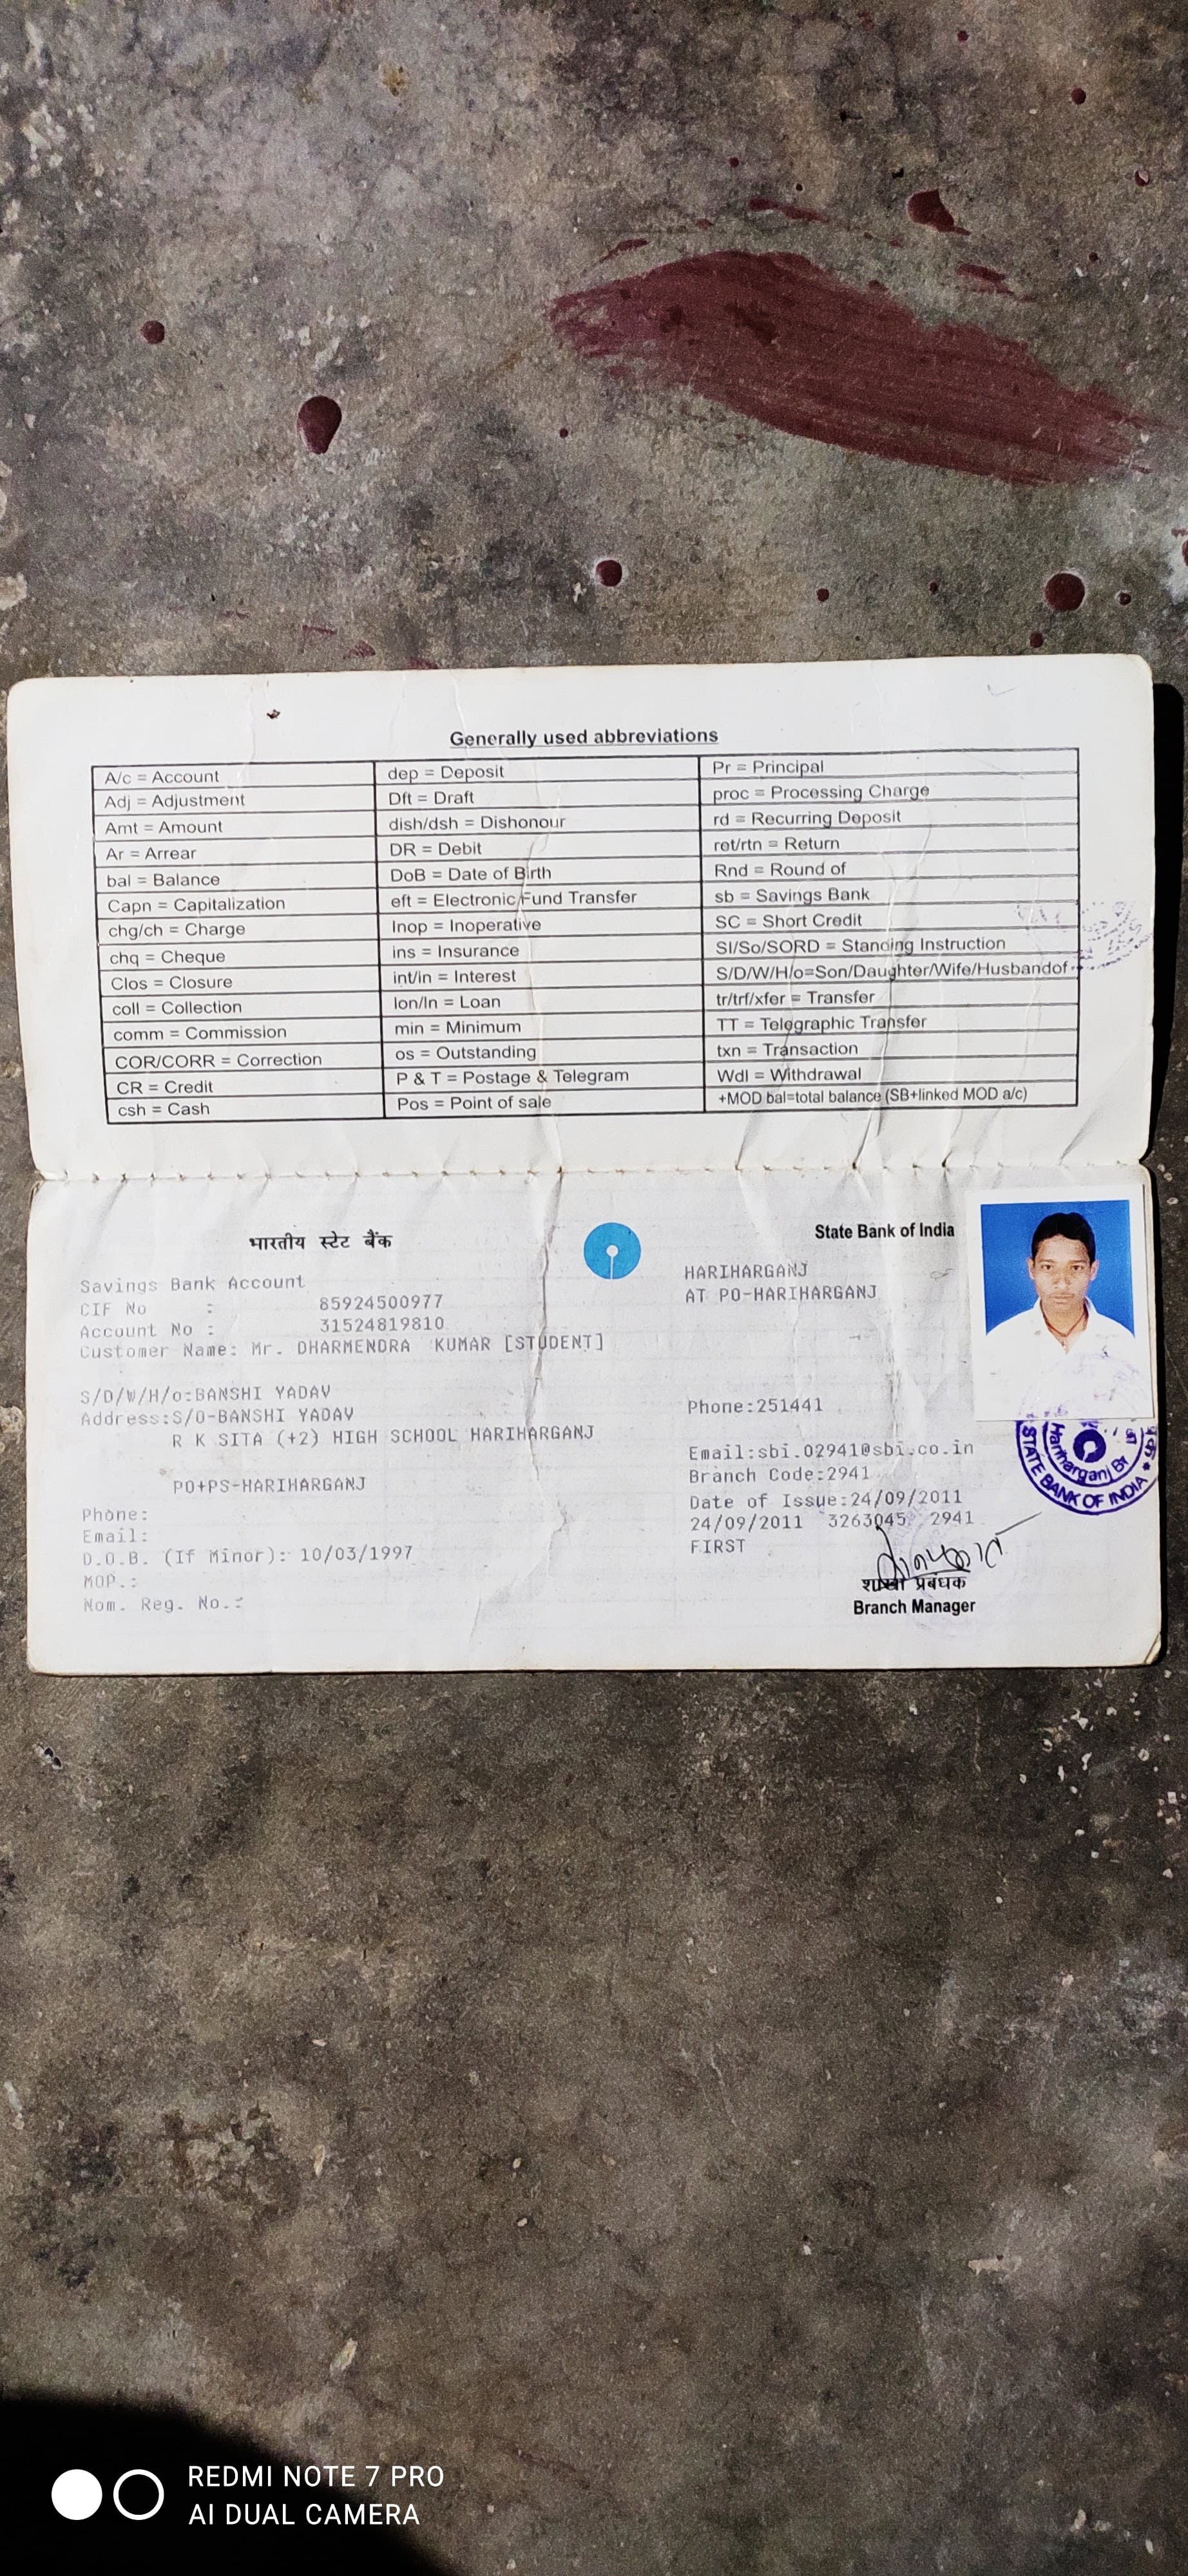 Generally used abbreviations
A/c = Account
Adj = Adjustment
Amt = Amount
Ar = Arrear
bal = Balance
Capn = Capitalization
chg/ch = Charge
chq = Cheque
Clos = Closure
coll = Collection
comm = Commission
COR/CORR = Correction
CR = Credit
csh = Cash
dep = Deposit
Dft = Draft
dish/dsh = Dishonour
DR = Debit
DoB = Date of Birth
eft = Electronic Fund Transfer
Inop = Inoperative
ins = Insurance
int/in = Interest
lon/ln = Loan
min = Minimum
os = Outstanding
P & T = Postage & Telegram
Pos = Point of sale
Pr = Principal
proc = Processing Charge
rd = Recurring Deposit
ret/rtn = Return
Rnd = Round of
sb = Savings Bank
SC = Short Credit
SI/So/SORD = Standing Instruction
S/D/W/H/o=Son/Daughter/Wife/Husbandof
tr/trf/xfer = Transfer
TT = Telegraphic Transfer
txn = Transaction
Wdl = Withdrawal
+MOD bal=total balance (SB+linked MOD a/c)
भारतीय स्टेट बैंक
State Bank of India
Savings Bank Account
CIF No : 85924500977
Account No : 31524819810
Customer Name: Mr. DHARMENDRA KUMAR [STUDENT]
S/D/W/H/o:BANSHI YADAV
Address:S/O-BANSHI YADAV
R K SITA (+2) HIGH SCHOOL HARIHARGANJ
PO+PS-HARIHARGANJ
Phone:
Email:
D.O.B. (If Minor): 10/03/1997
MOP.:
Nom. Reg. No.:
HARIHARGANJ
AT PO-HARIHARGANJ
Phone:251441
Email:sbi.02941@sbi.co.in
Branch Code:2941
Date of Issue:24/09/2011
24/09/2011 3263045 2941
FIRST
शाखा प्रबंधक
Branch Manager
Hariharganj Br
STATE BANK OF INDIA
REDMI NOTE 7 PRO
AI DUAL CAMERA